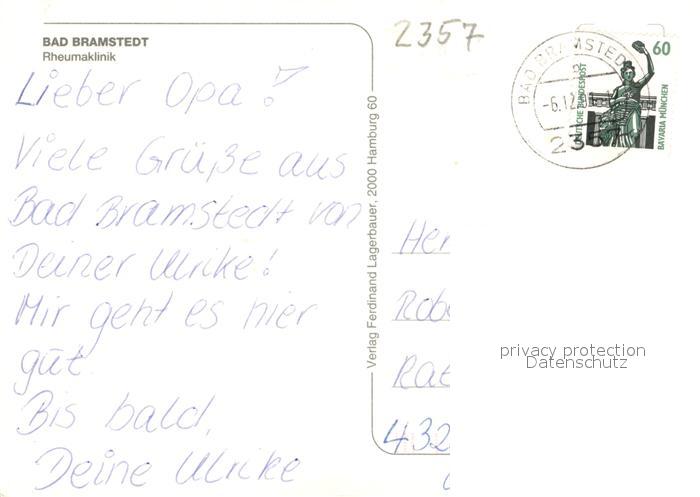 BAD BRAMSTEDT
Rheumaklinik
Lieber Opa!
Viele Grüße aus
Bad Bramstedt von
Deiner Ulrike!
Mir geht es hier
gut.
Bis bald,
Deine Ulrike
Verlag Ferdinand Lagerbauer, 2000 Hamburg 60
2357
BAD BRAMSTEDT
-6.12.
2357
60
DEUTSCHE BUNDESPOST
BAVARIA MÜNCHEN
Her
Robe
Rat
432
privacy protection
Datenschutz